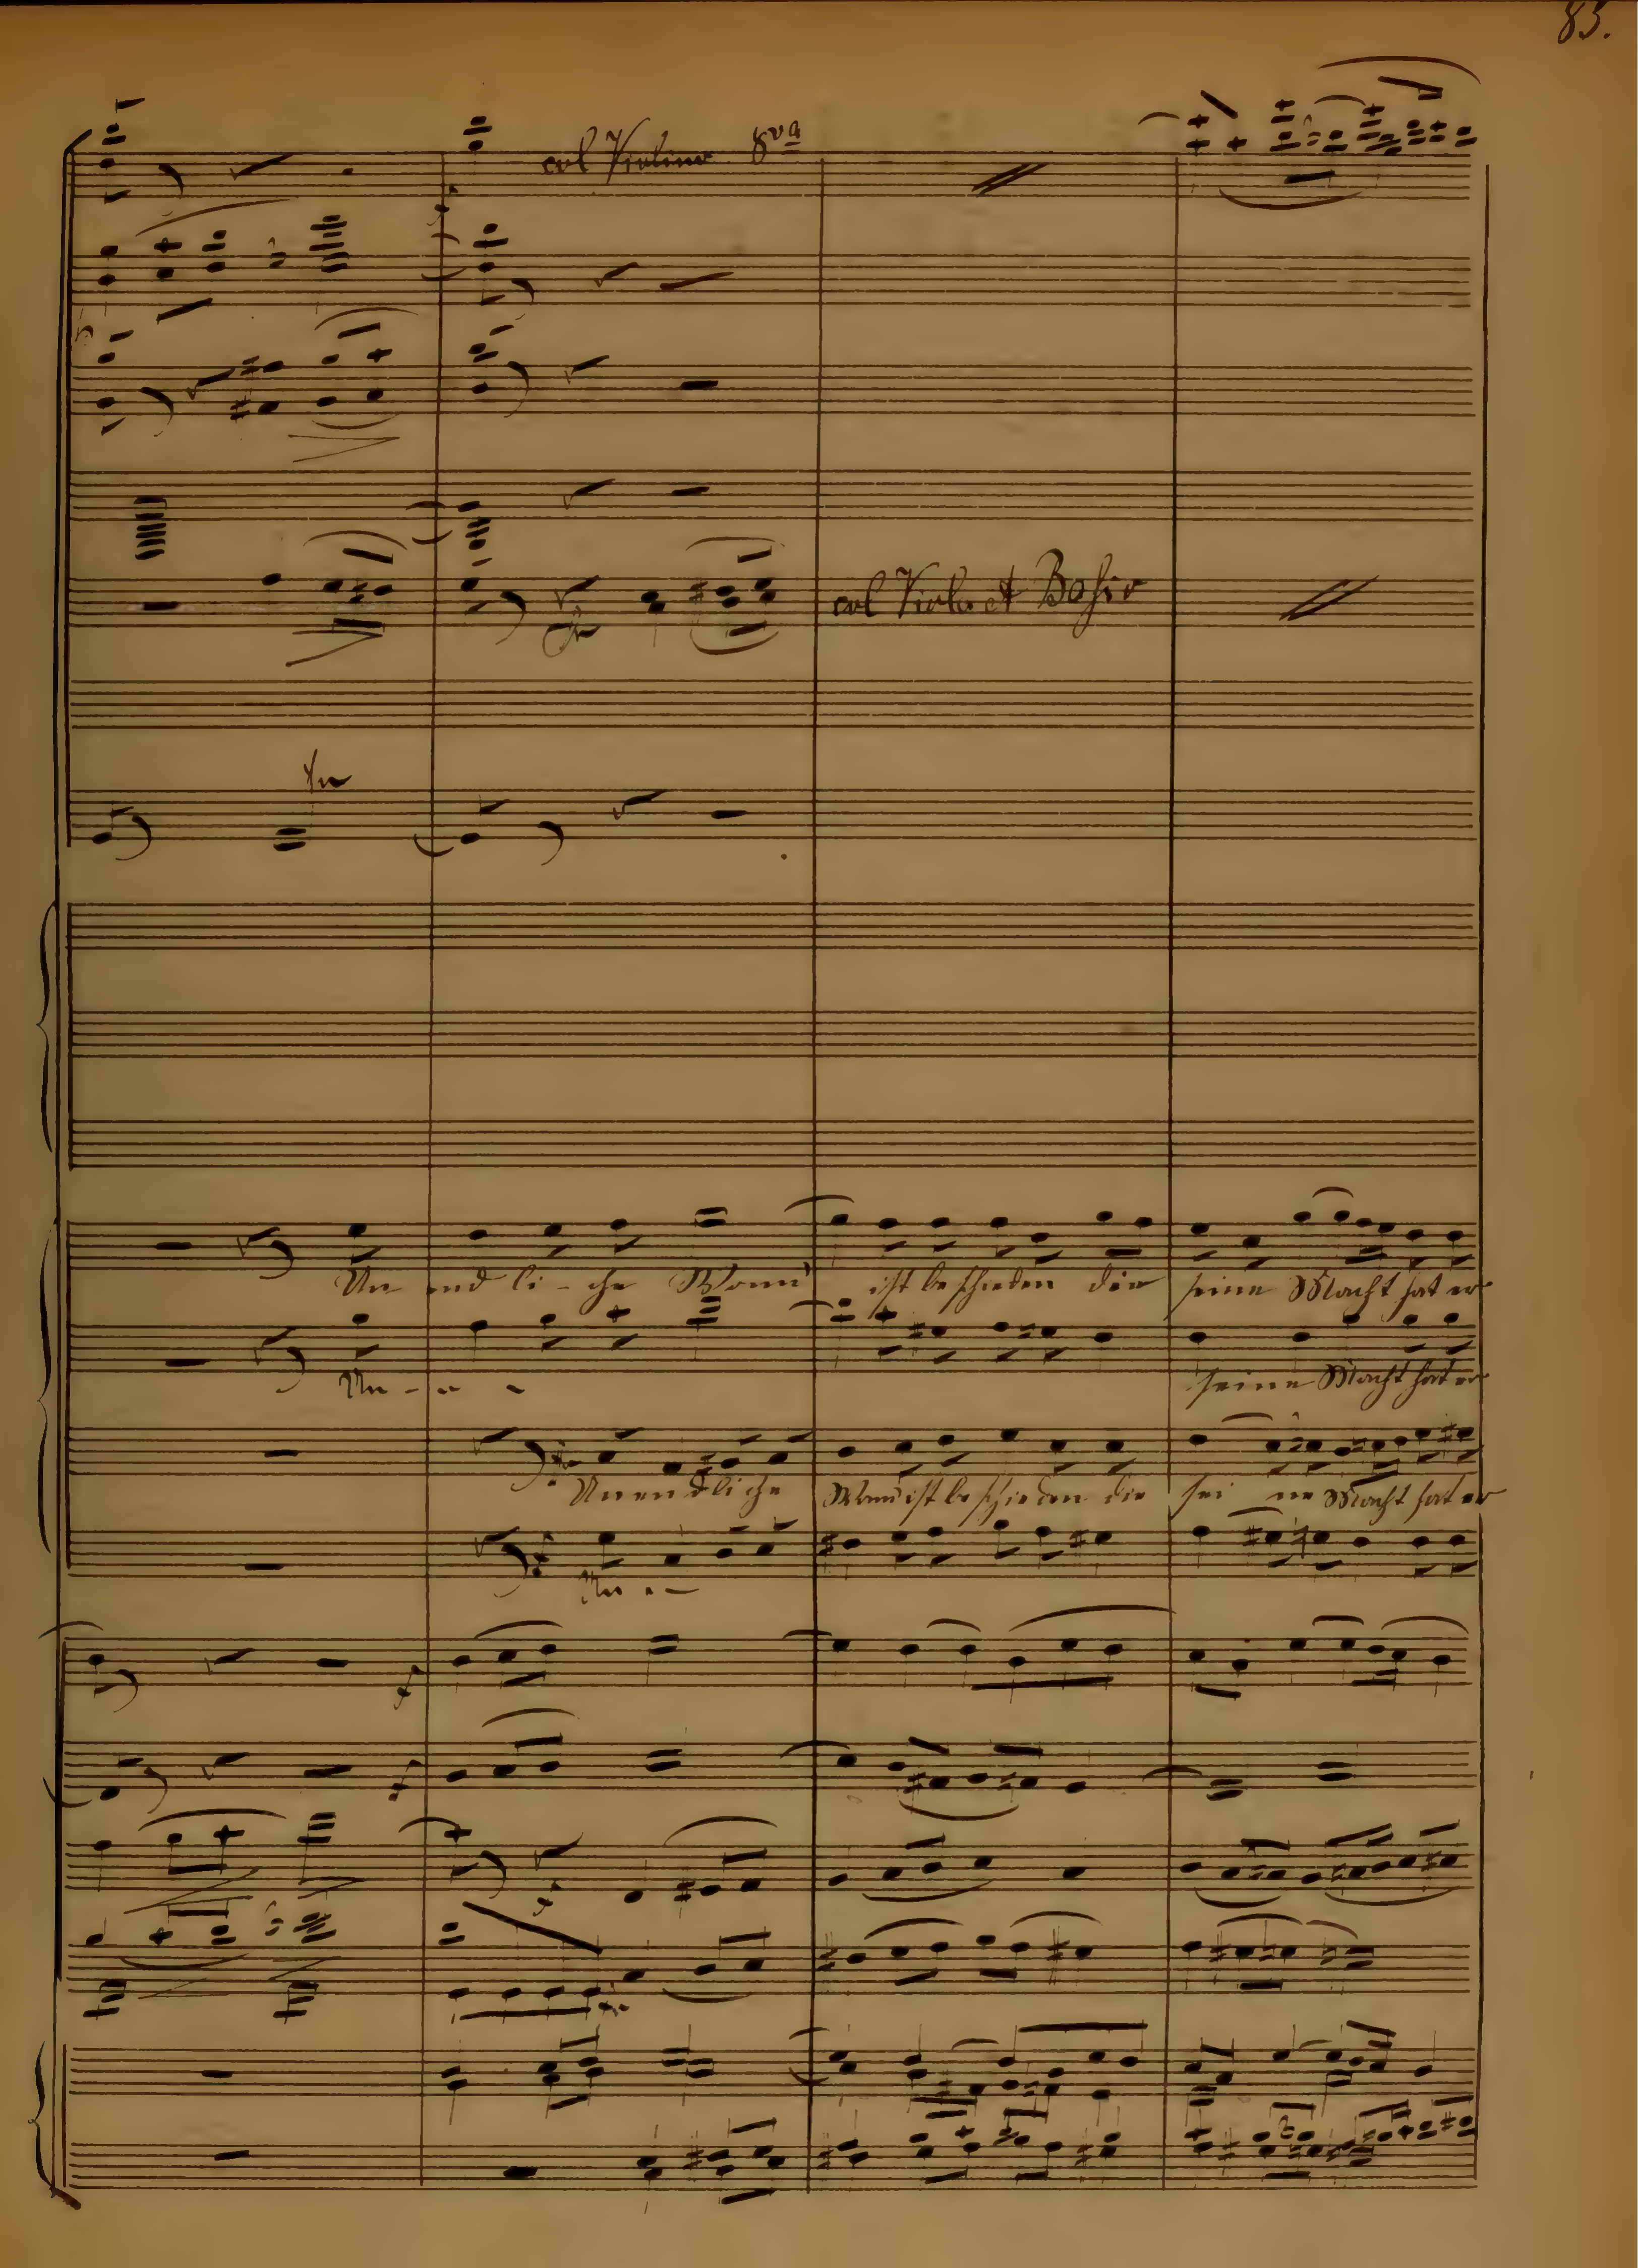 85.
col Violino 8va
col Viola et Basso
Un end li - che Wonn' ist beschieden die seine Macht hat er
Un - - -
seine Macht hat er
Unendliche Wonn' ist beschieden die sei ne Macht hat er
Un - -